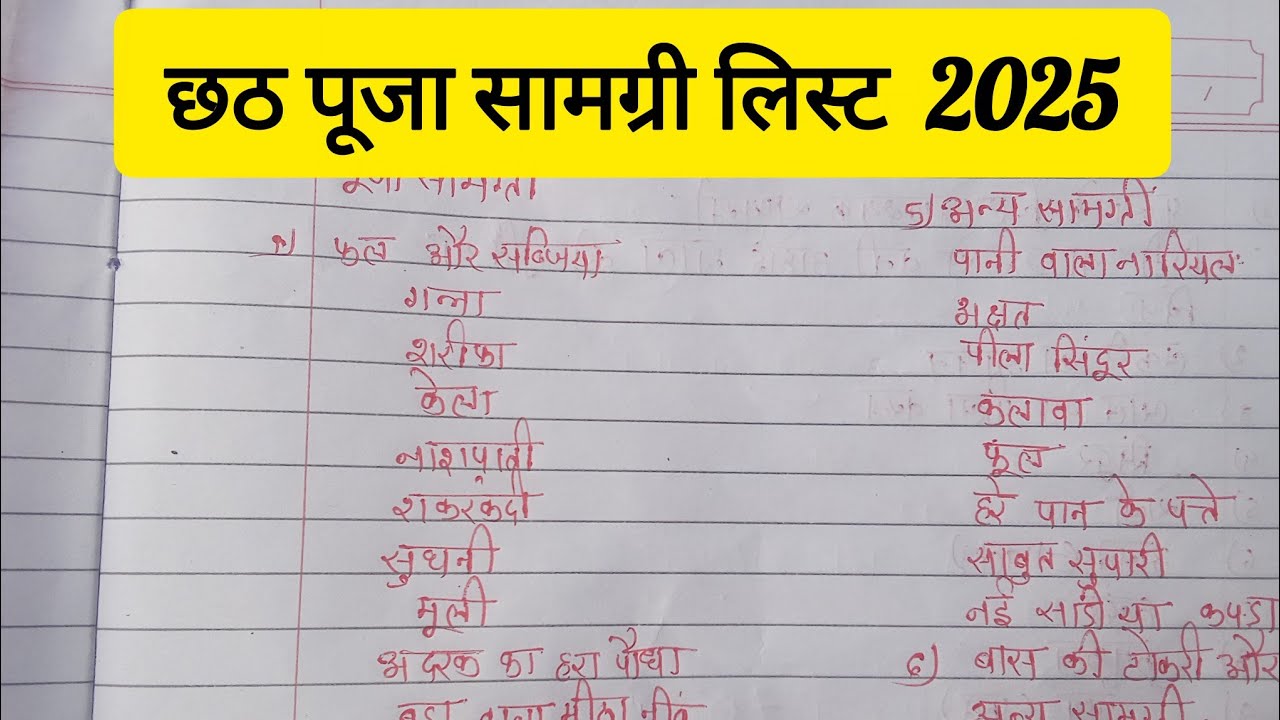 छठ पूजा सामग्री लिस्ट 2025
पूजा सामग्री
१) फल और सब्जिया
गन्ना
शरीफा
केला
नाशपाती
शकरकंदी
सुथनी
मूली
अदरक का हरा पौधा
बड़ा वाला मीठा नींबू
5) अन्य सामग्री
पानी वाला नारियल
अक्षत
पीला सिंदूर
कलावा
फूल
हरे पान के पत्ते
साबुत सुपारी
नई साडी या कपडा
६) बास की टोकरी और
अन्य सामग्री